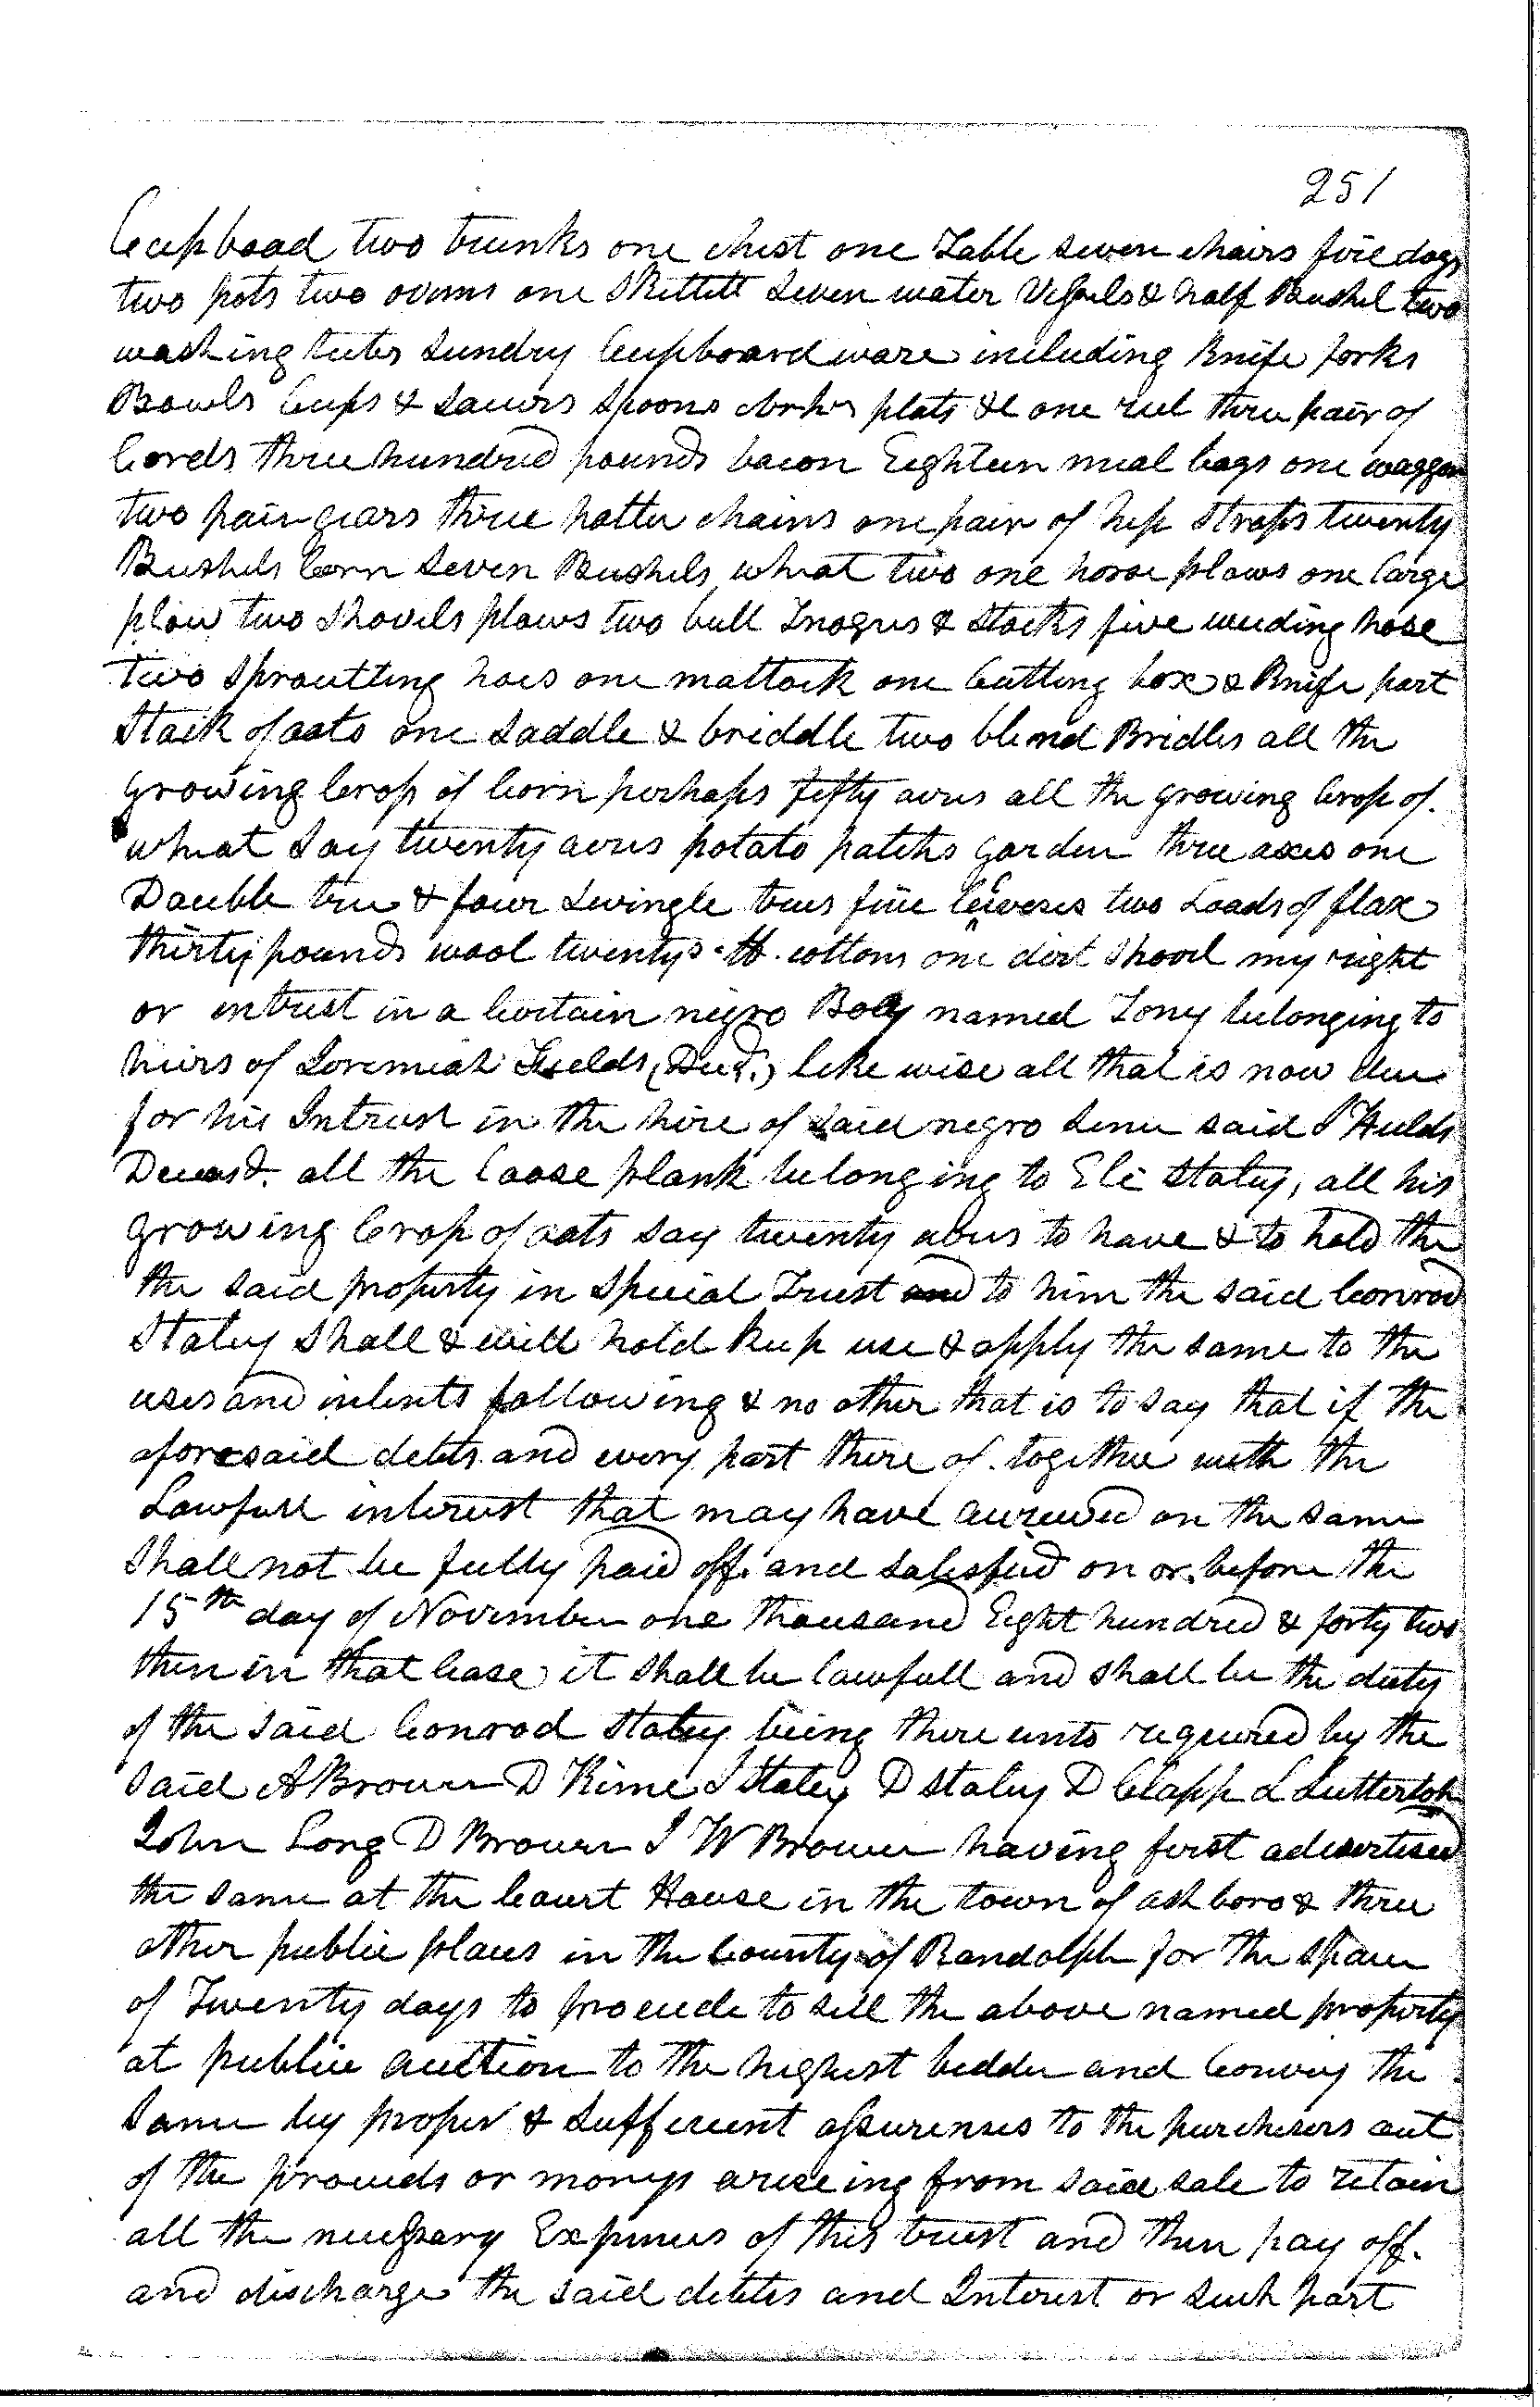 251
Cupboad two trunks one chest one Table seven chairs fire dogs
two pots two ovens one Skittett Seven water Vessels & half Bushel two
washing tubs Sundry Cupboard ware including Knife forks
Bowls Cups & Saucers Spoons plats &c one reel three pair of
Cords three hundred pounds bacon Eighteen meal bags one waggon
two pair gears three halter chains one pair of hip straps twenty
Bushels Corn Seven Bushels wheat two one horse plows one large
plow two Shovels plows two bull & Stocks five weeding hose
two Sproutting hoes one mattock one Cutting box & Knife part
Stack of oats one Saddle & briddle two blend Bridles all the
growing Crop of Corn perhaps fifty acres all the growing Crop of
wheat Say twenty acres potato patchs garden three axes one
Double tree & four Swingle trees five two Loads of flax
thirty pounds wool twenty lb. cotton one dirt Shovel my right
or intrest in a Certain negro Boy named Tony belonging to
heirs of Jeremiah Fields (Decd.) like wise all that is now due
for his Intrust in the hire of Said negro Sence said J Fields
Deceasd. all the loose plank belonging to Eli Staley, all his
growing Crop of oats Say twenty acres to have & to hold the
the said property in Special Trust and to him the said Conrod
Staley Shall & will hold keep use & apply the same to the
uses and intents following & no other that is to say that if the
aforesaid debts and every part there of together with the
Lawfull interest that may have accrued on the same
Shall not be fully paid off and satisfied on or before the
15th day of November one thousand Eight hundred & forty two
then in that Case it shall be lawfull and shall be the duty
of the said Conrod Staley being there unto required by the
Said A Brower D Kime J Staley D Staley D Clapp L Lutterloh
John Long D Brower J W Brower having first advertised
the same at the Court House in the town of ashboro & three
other public places in the County of Randolph for the space
of Twenty days to proceede to sell the above named property
at public auction to the highest bidder and Convey the
Same by proper & Sufficient assurenses to the purchesers out
of the proceeds or moneys areseing from said sale to retain
all the necessary Expenses of this trust and then pay off
and discharge the said debtes and Interest or such part